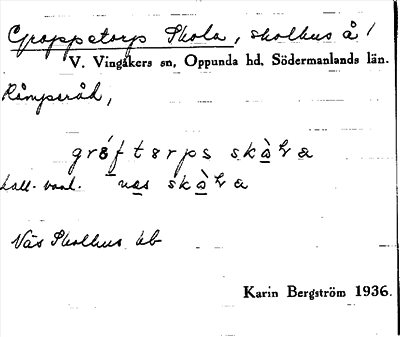 Groppetorps Skola, skolhus å /
V. Vingåkers sn, Oppunda hd, Södermanlands län.
Kämpsråd,
grǿftərps skὰLa
kall. vanl. nas skὰLa
Näs Skolhus kb
Karin Bergström 1936.